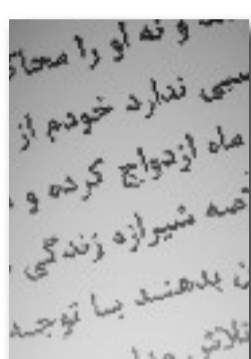 و نه او را محاک
سبی ندارد خودم از
ماه ازدواج کرده و
صه شیرازه زندگی
ن بدهند با توجه
تلاش